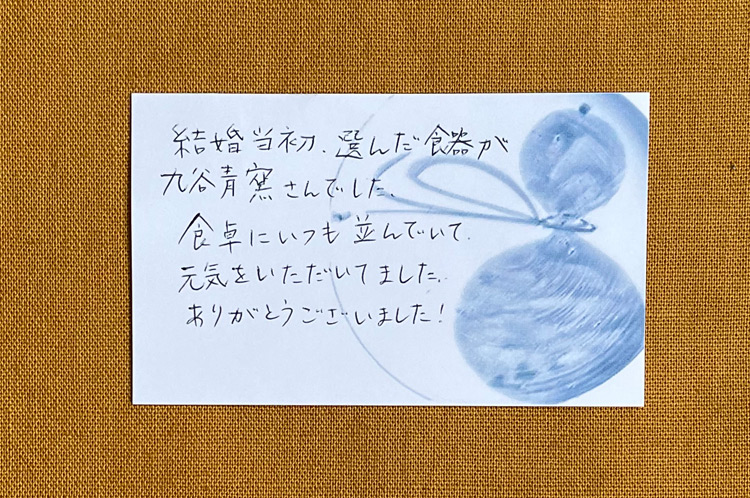 結婚当初、選んだ食器が
九谷青窯さんでした。
食卓にいつも並んでいて、
元気をいただいてました。
ありがとうございました!